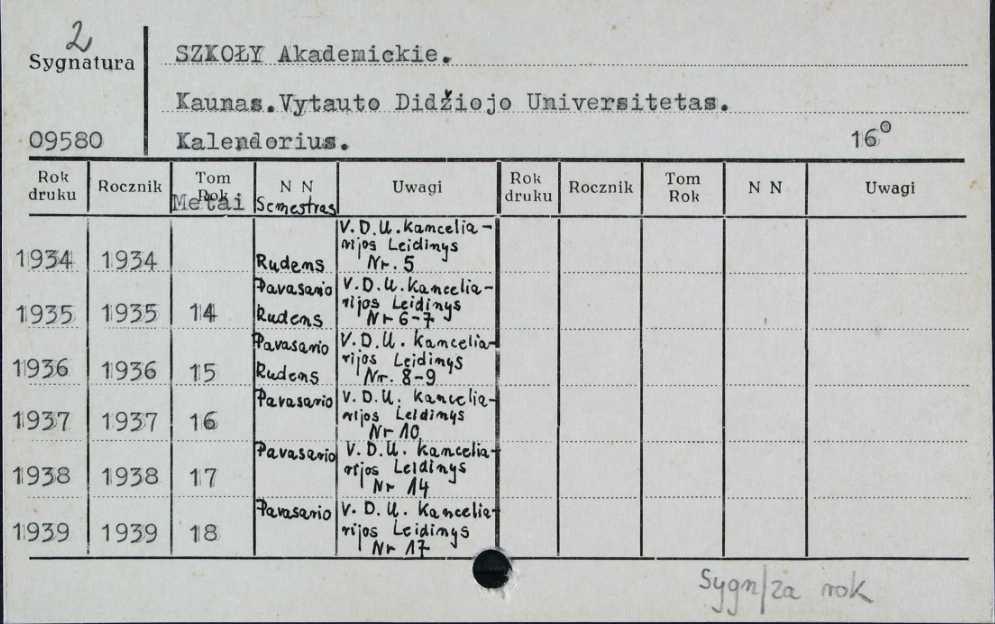 2
Sygnatura
SZKOŁY Akademickie.
Kaunas.Vytauto Didžiojo Universitetas.
09580
Kalendorius.
16°
Rok druku Rocznik Tom Rok Metai N N Semestras Uwagi Rok druku Rocznik Tom Rok N N Uwagi
V.D.U.kancelia-
rijos Leidinys
1934 1934 Rudens Nr. 5
Pavasario V.D.U.kancelia-
rijos Leidinys
1935 1935 14 Rudens Nr 6-7
Pavasario V.D.U. kancelia-
rijos Leidinys
1936 1936 15 Rudens Nr. 8-9
Pavasario V.D.U. kancelia-
1937 1937 16 rijos Leidinys
Nr 10
Pavasario V.D.U. kancelia-
1938 1938 17 rijos Leidinys
Nr 14
Pavasario V.D.U. kancelia-
1939 1939 18 rijos Leidinys
Nr 17
Sygn/za rok